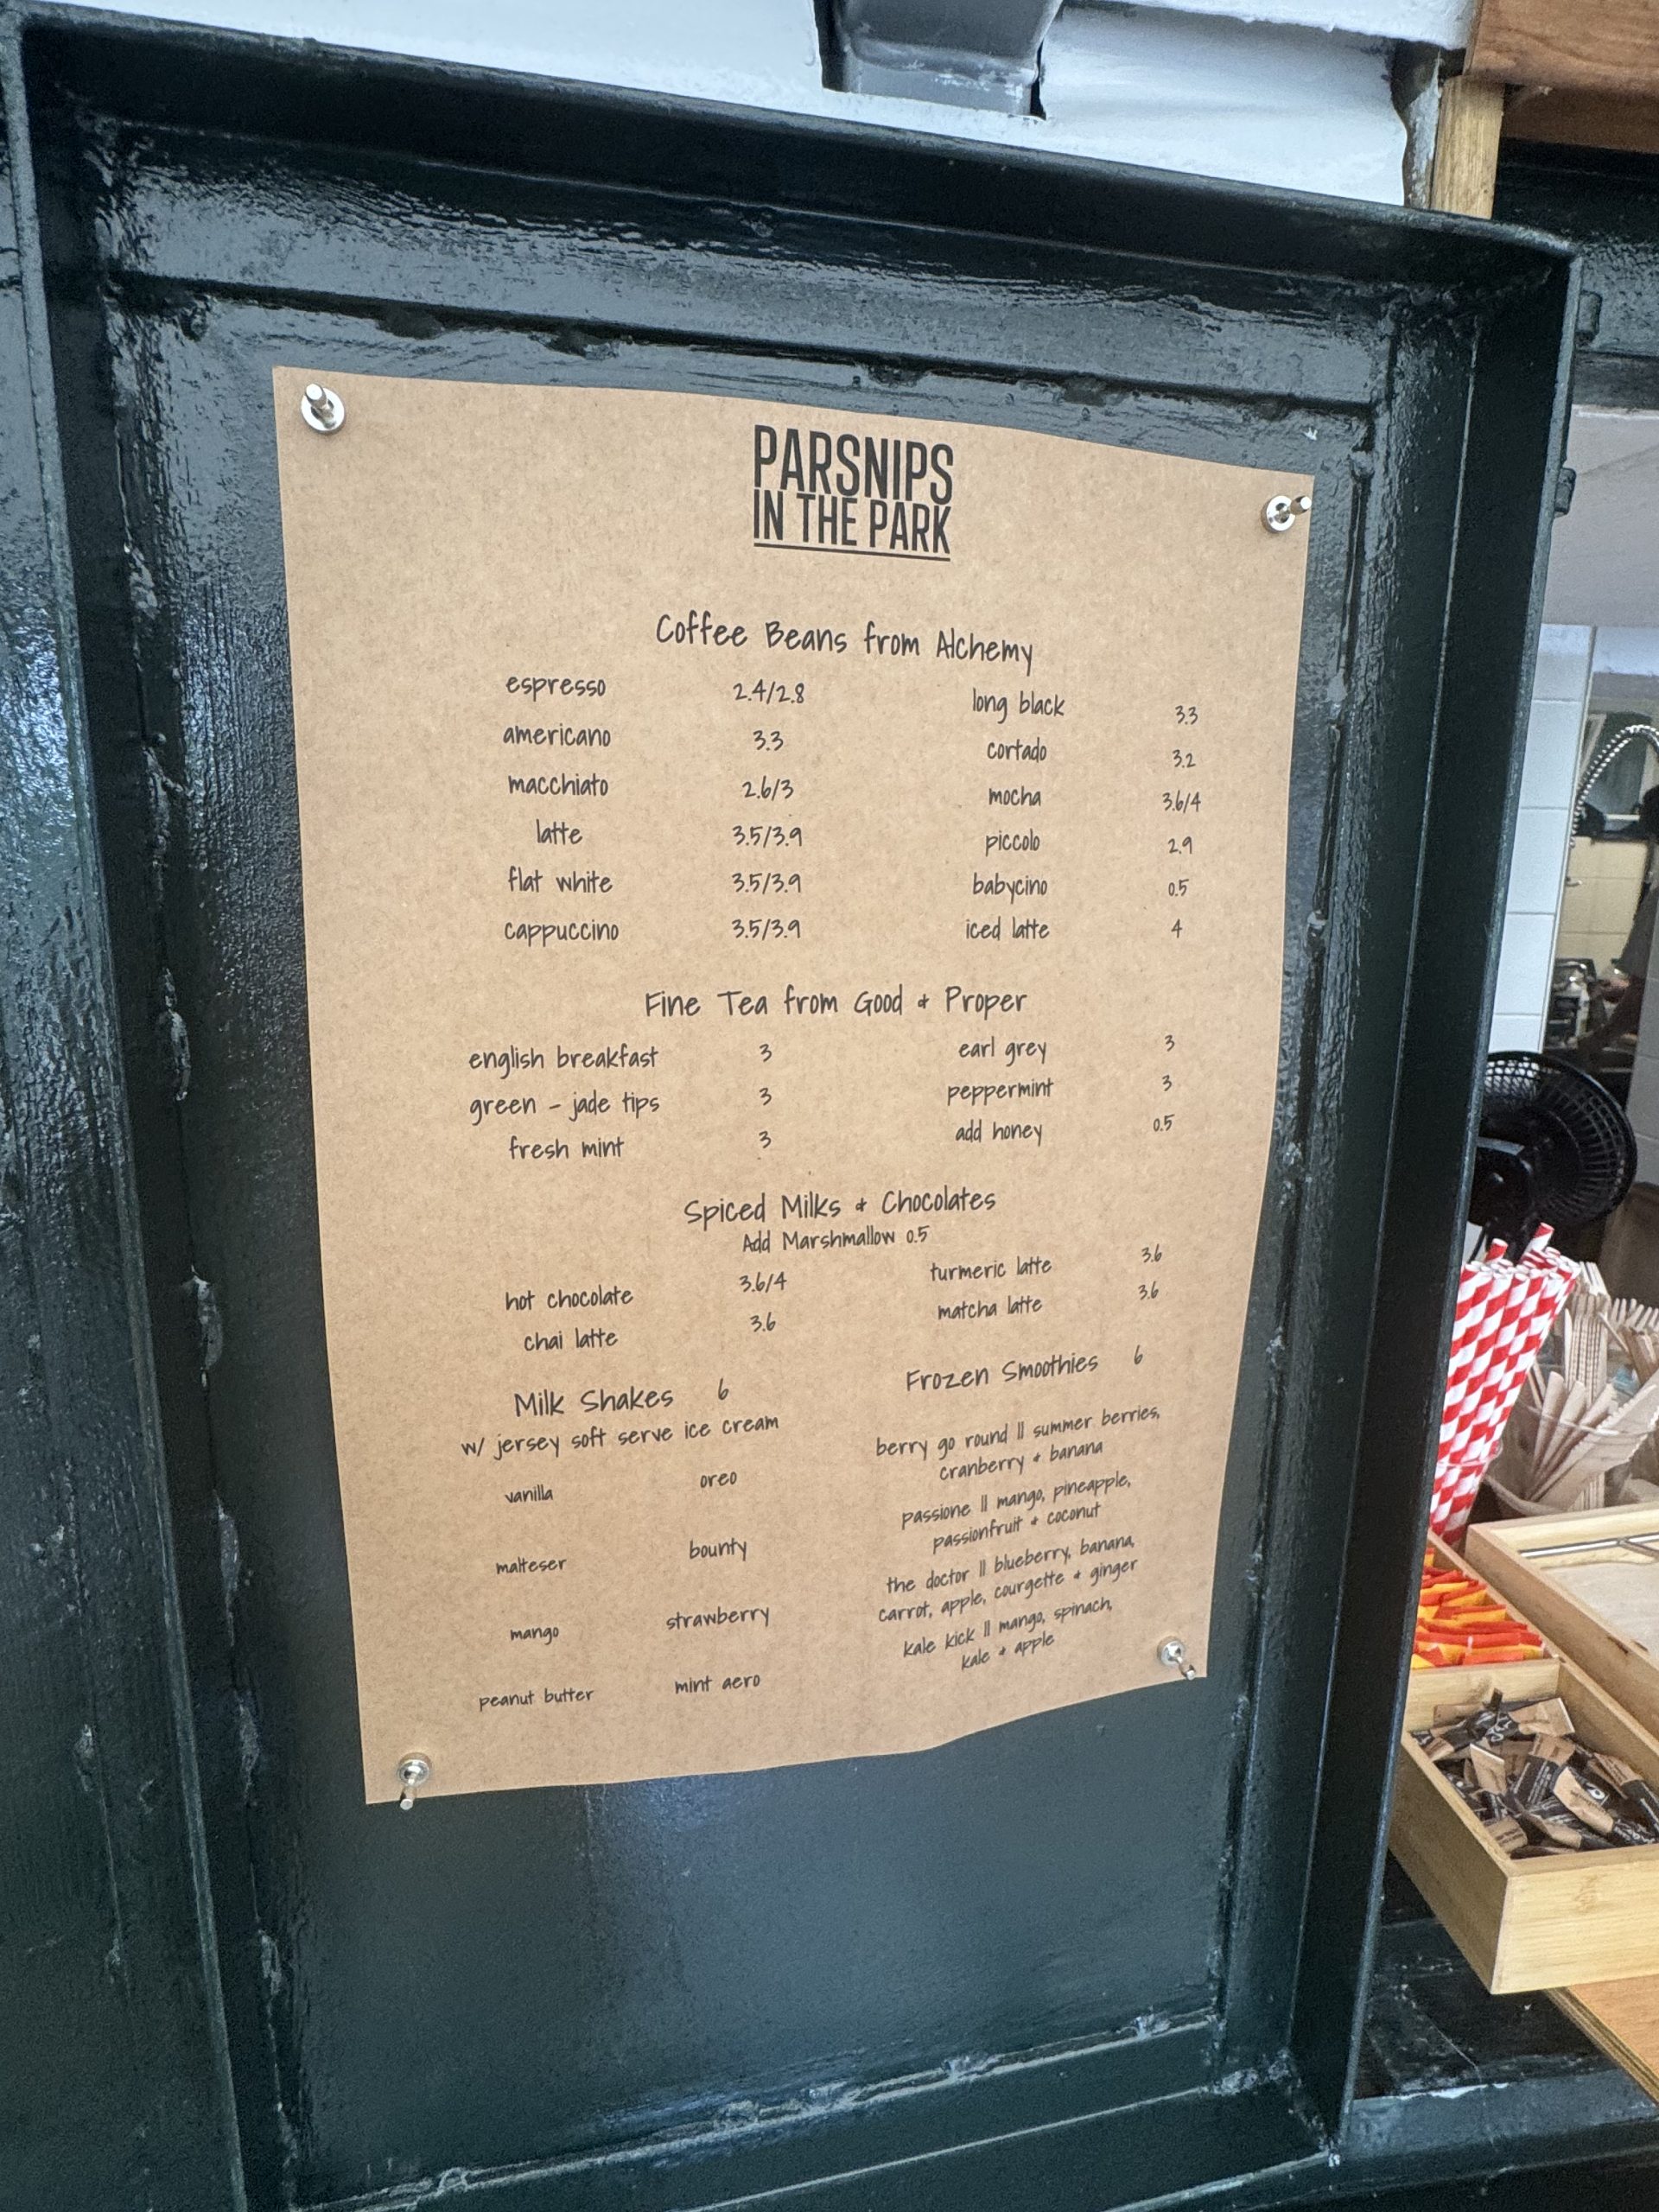 PARSNIPS
IN THE PARK
Coffee Beans from Alchemy
espresso 2.4/2.8 long black 3.3
americano 3.3 cortado 3.2
macchiato 2.6/3 mocha 3.6/4
latte 3.5/3.9 piccolo 2.9
flat white 3.5/3.9 babycino 0.5
cappuccino 3.5/3.9 iced latte 4
Fine Tea from Good & Proper
english breakfast 3 earl grey 3
green - jade tips 3 peppermint 3
fresh mint 3 add honey 0.5
Spiced Milks & Chocolates
Add Marshmallow 0.5
hot chocolate 3.6/4 turmeric latte 3.6
chai latte 3.6 matcha latte 3.6
Milk Shakes 6
w/ jersey soft serve ice cream
vanilla oreo
malteser bounty
mango strawberry
peanut butter mint aero
Frozen Smoothies 6
berry go round || summer berries,
cranberry & banana
passione || mango, pineapple,
passionfruit & coconut
the doctor || blueberry, banana,
carrot, apple, courgette & ginger
kale kick || mango, spinach,
kale & apple